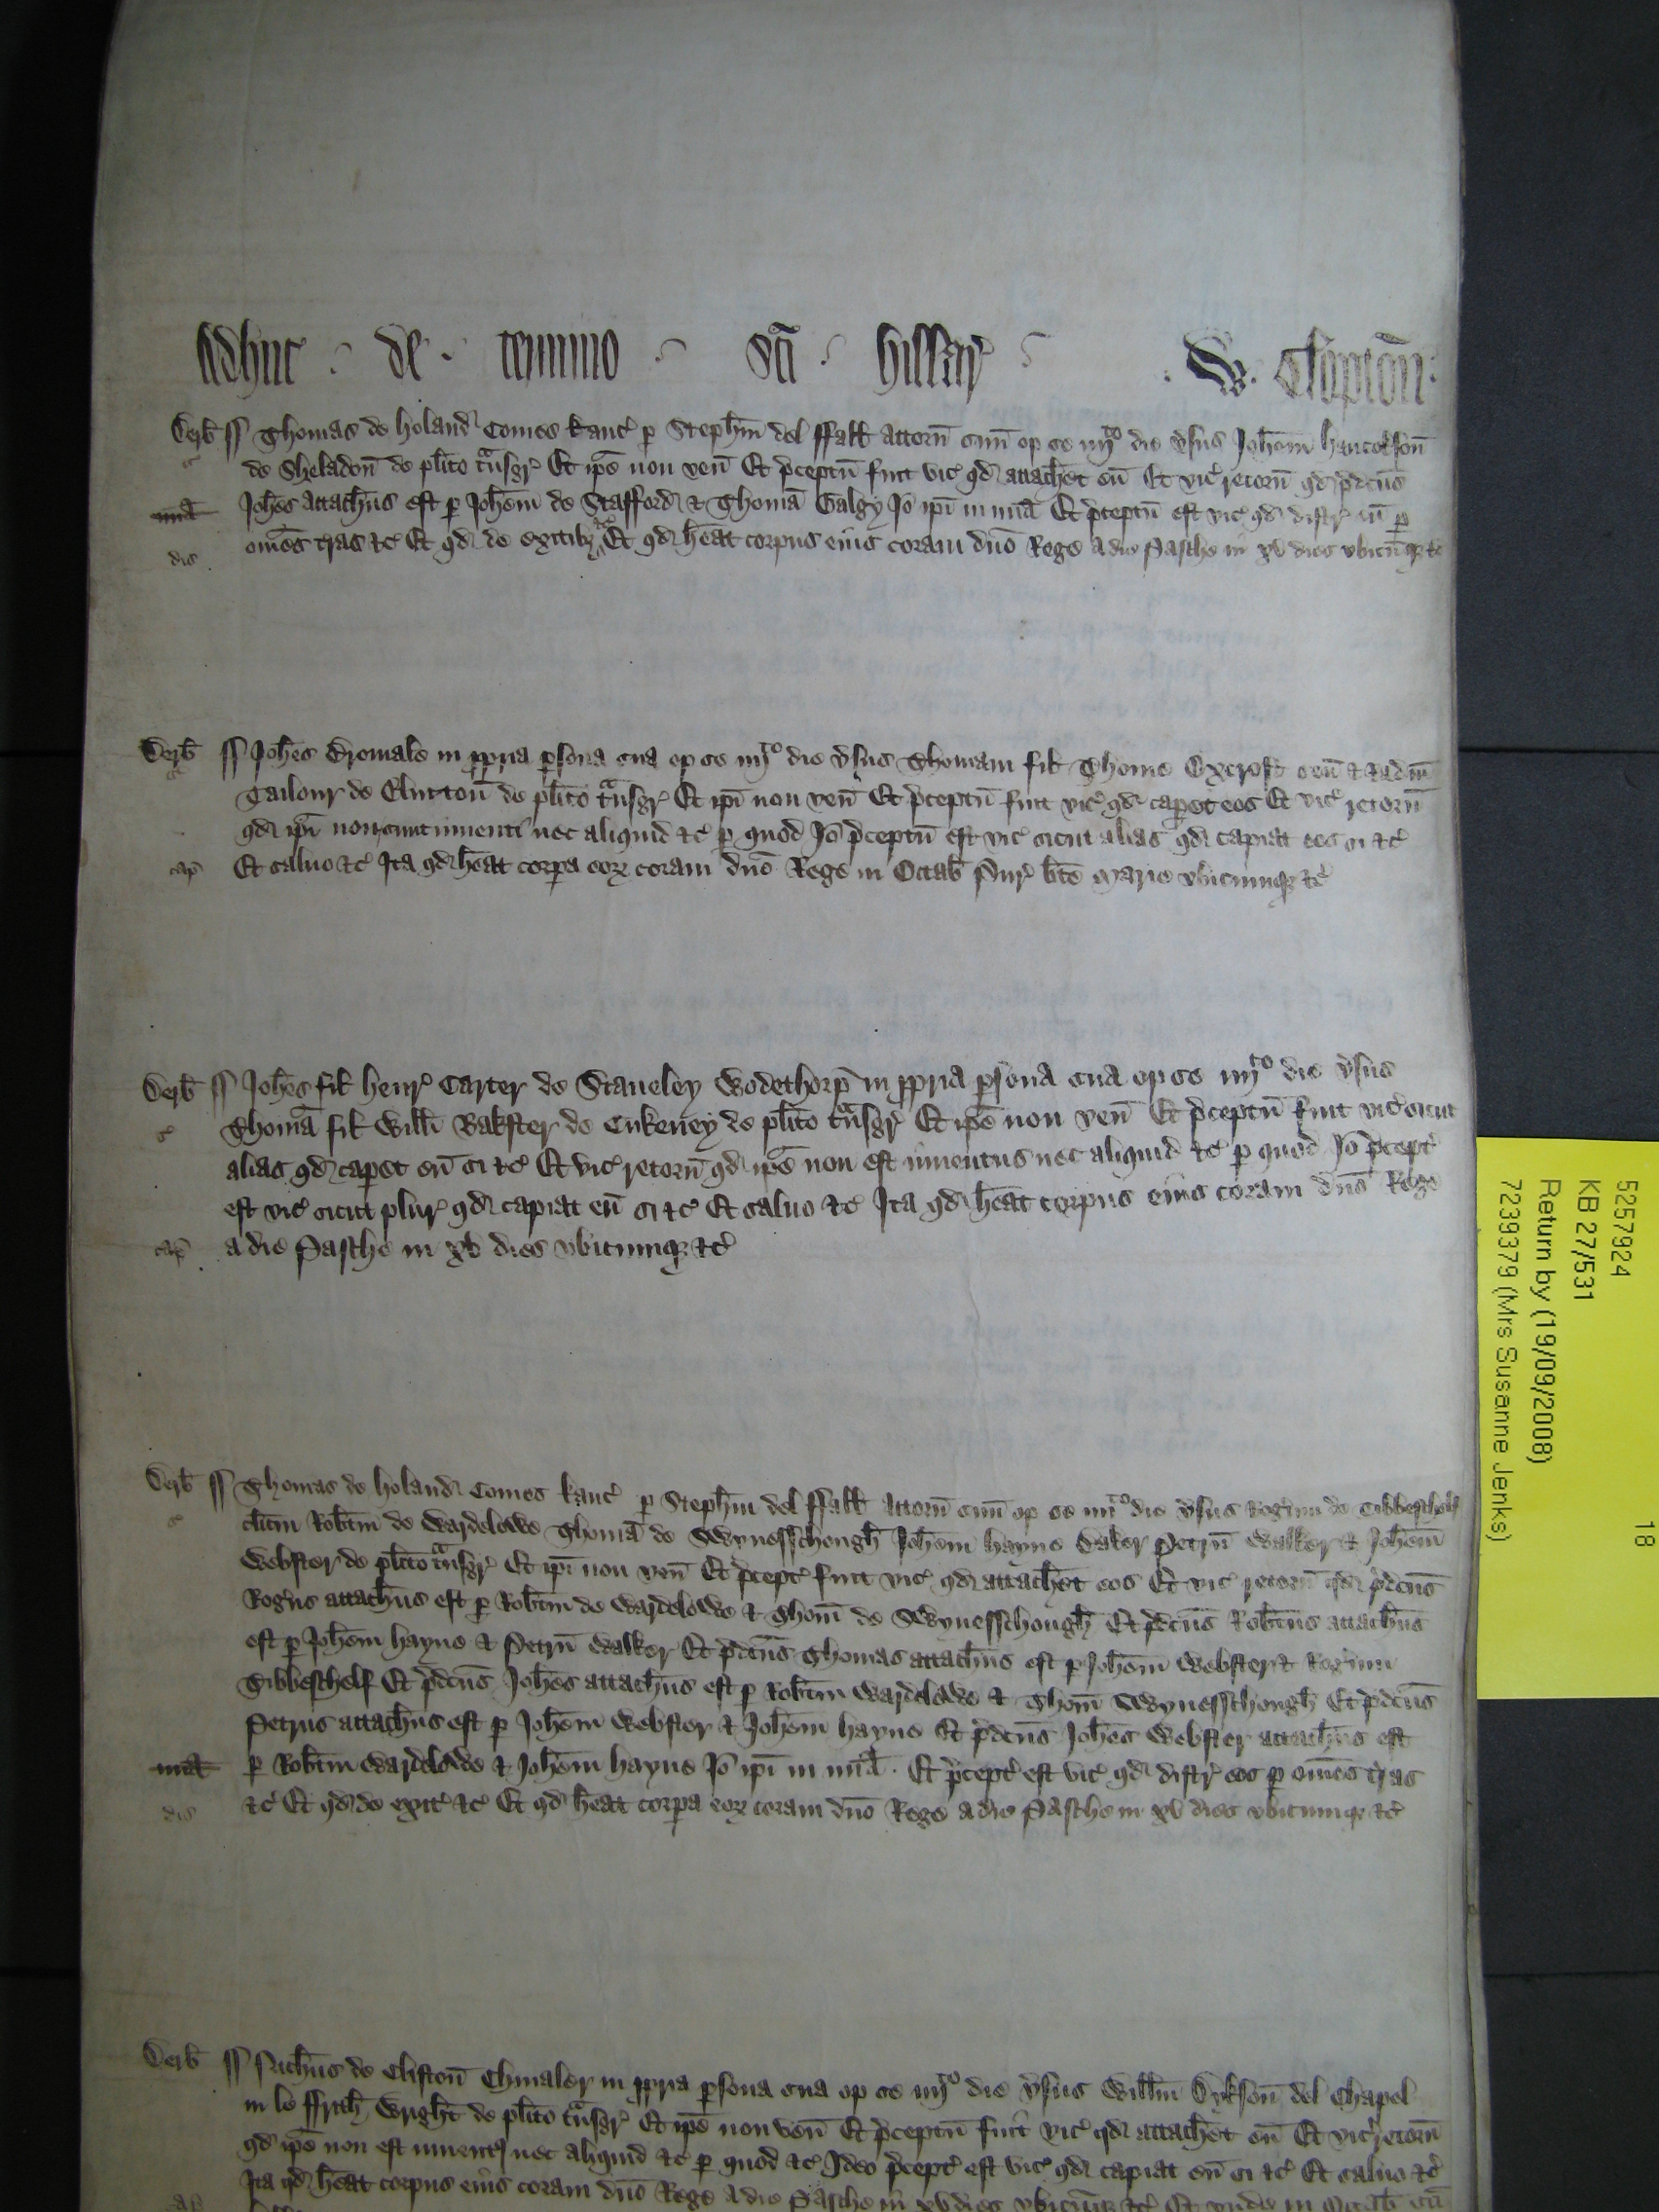 Adhuc de termino Sc̄i Hillar̄ W. Clopton̄
Derb̄ ss Thomas de Holand Comes Kanc̄ p Stephm̄ del ffall Attorn̄ suū op se iiijto die v̄sus Joh̄em
de Sheladon̄ de pl̄ito tn̄sgr̄ Et ip̄e non ven̄ Et p̄ceptū fuit vic̄ qd attach̄et eū Et vic̄ retorn̄ qd p̄dc̄us
Joh̄es attach̄us est p Joh̄em de Stafford & Thomā Galgy Jō ip̄i in mīa Et p̄ceptū est vic̄ qd distr̄ eū p
om̄es t̄ras &c̄ Et qd de exitibȝ &c̄ Et qd h̄eat corpus eius coram dn̄o Rege a die Pasche in xv dies vbicūqȝ &c̄
dis
Derb̄ ss Joh̄es Bromale in ppria psona sua op se iiijto die v̄sus Thomam fil̄ Thome
Tailour de Clutton̄ de pl̄ito tn̄sgr̄ Et ip̄i non ven̄ Et p̄ceptū fuit vic̄ qd capet eos Et vic̄ retorn̄
qd ip̄i non sunt inuenti nec aliquid &c̄ p quod Jō p̄ceptū est vic̄ sicut alias qd capiat eos si &c̄
cap̄ Et saluo &c̄ Ita qd h̄eat corpa eoȝ coram dn̄o Rege in Octab̄ Pur̄ b̄te Marie vbicumqȝ &c̄
Derb̄ ss Joh̄es fil̄ Henr̄ Carter de Staueley Wodethorp̄ in ppria psona sua op se iiijto die v̄sus
Thomā fil̄ Will̄i Bakster de Cukeney de pl̄ito tn̄sgr̄ Et ip̄e non ven̄ Et p̄ceptū fuit vic̄ sicut
alias qd capet eū si &c̄ Et vic̄ retorn̄ qd ip̄e non est inuentus nec aliquid &c̄ p quod Jō p̄cept̄
est vic̄ sicut plur̄ qd capiat eū si &c̄ Et saluo &c̄ Ita qd h̄eat corpus eius coram dn̄o Rege
cap̄ a die Pasche in xv dies vbicumqȝ &c̄
Derb̄ ss Thomas de Holand Comes Kanc̄ p Stephm̄ del ffall Attorn̄ suū op se iiijto die v̄sus Rogm̄ de
Robtm̄ de Wardelowe Thomā de Wynesschough Joh̄em Hayne Baker Petrū Walker & Joh̄em
Webster de pl̄ito tn̄sgr̄ Et ip̄i non ven̄ Et p̄cept̄ fuit vic̄ qd attach̄et eos Et vic̄ retorn̄ qd p̄dc̄us
Rogūs attach̄us est p Robtm̄ de Wardelowe & Thom̄ de Wynesschough Et p̄dc̄us Robtūs attach̄us
est p Joh̄em Hayne & Petrū Walker Et p̄dc̄us Thomas attach̄us est p Joh̄em Webster & Rogm̄
Tibbeshelf Et p̄dc̄us Joh̄es attach̄us est p Robtm̄ Wardelowe & Thom̄ Wynesschough Et p̄dc̄us
Petrus attach̄us est p Joh̄em Webster & Joh̄em Hayne Et p̄dc̄us Joh̄es Webster attach̄us est
p Robtm̄ Wardelowe & Joh̄em Hayne Jō ip̄i in mīa. Et p̄cept̄ est vic̄ qd distr̄ eos p om̄es t̄ras
dis &c̄ Et qd de exit̄ &c̄ Et qd h̄eat corpa eoȝ coram dn̄o Rege a die Pasche in xv dies vbicumqȝ &c̄
Derb̄ ss Nich̄us de Clifton̄ Chiualer in ppria psona sua op se iiijto die v̄sus Will̄m Dykson̄ del Chapel
in le ffrith Wright de pl̄ito tn̄sgr̄ Et ip̄e non ven̄ Et p̄ceptū fuit vic̄ qd attach̄et eū Et vic̄ retorn̄
qd ip̄e non est inuentȝ nec aliquid &c̄ p quod &c̄ Ideo p̄cept̄ est vic̄ qd capiat eū si &c̄ Et saluo &c̄
Ita qd h̄eat corpus eius coram dn̄o Rege a die Pasche in xv dies vbicūqȝ &c̄
5257924 18
KB 27/531
Return by (19/09/2008)
7239379 (Mrs Susanne Jenks)